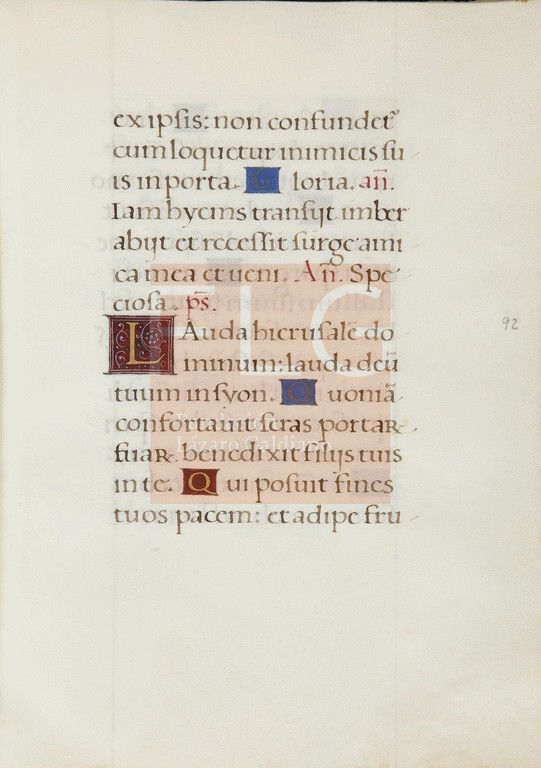 ex ipſis: non confundet᷒
cum loquetur inimicis ſu
is in porta. Gloria. an̄.
Iam hyems tranſijt imber
abijt et receſſit ſurge ami
ca mea et ueni. An̄. Spe
cioſa. ps̄.
LAuda hieruſale do
minum: lauda deū
tuum in ſyon. Quoniā
confortauit ſeras portaꝝ
tuaꝝ. benedixit filijs tuis
in te. Qui poſuit fines
tuos pacem: et adipe fru
92
FLG
Lázaro Galdiano